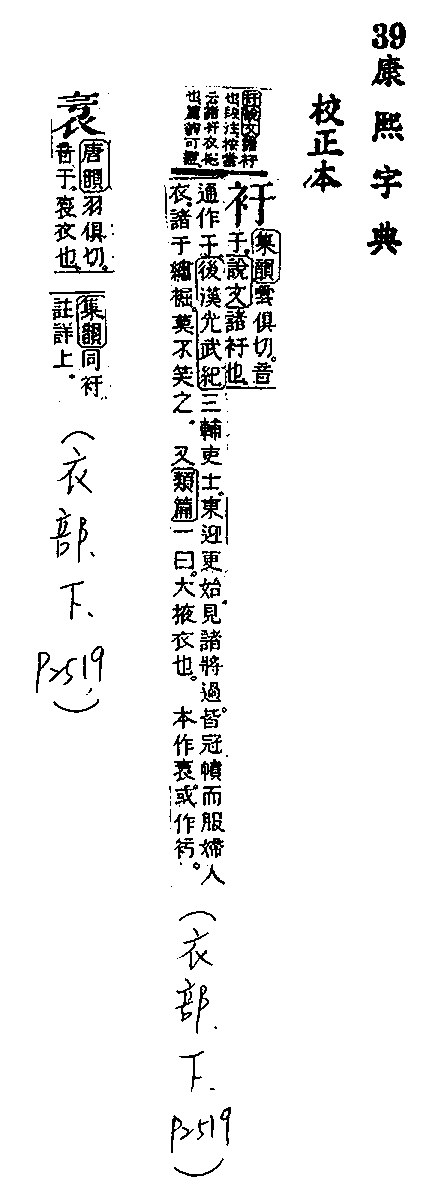 39康熙字典
校正本
衧
集韻雲俱切。音
于。說文諸衧也。
通作于。後漢光武紀三輔吏士。東迎更始。見諸將過。皆冠幘而服婦人
衣。諸于繡𧝬。莫不笑之。 又類篇一曰。大掖衣也。 本作𧘝。或作䄨。
衧說文諸衧
也段注按當
云諸衧衣
(衣部、下、P2519)
唐韻羽俱切。
音于。衣也。
集韻同衧
註詳上。
(衣部、下、P2519)